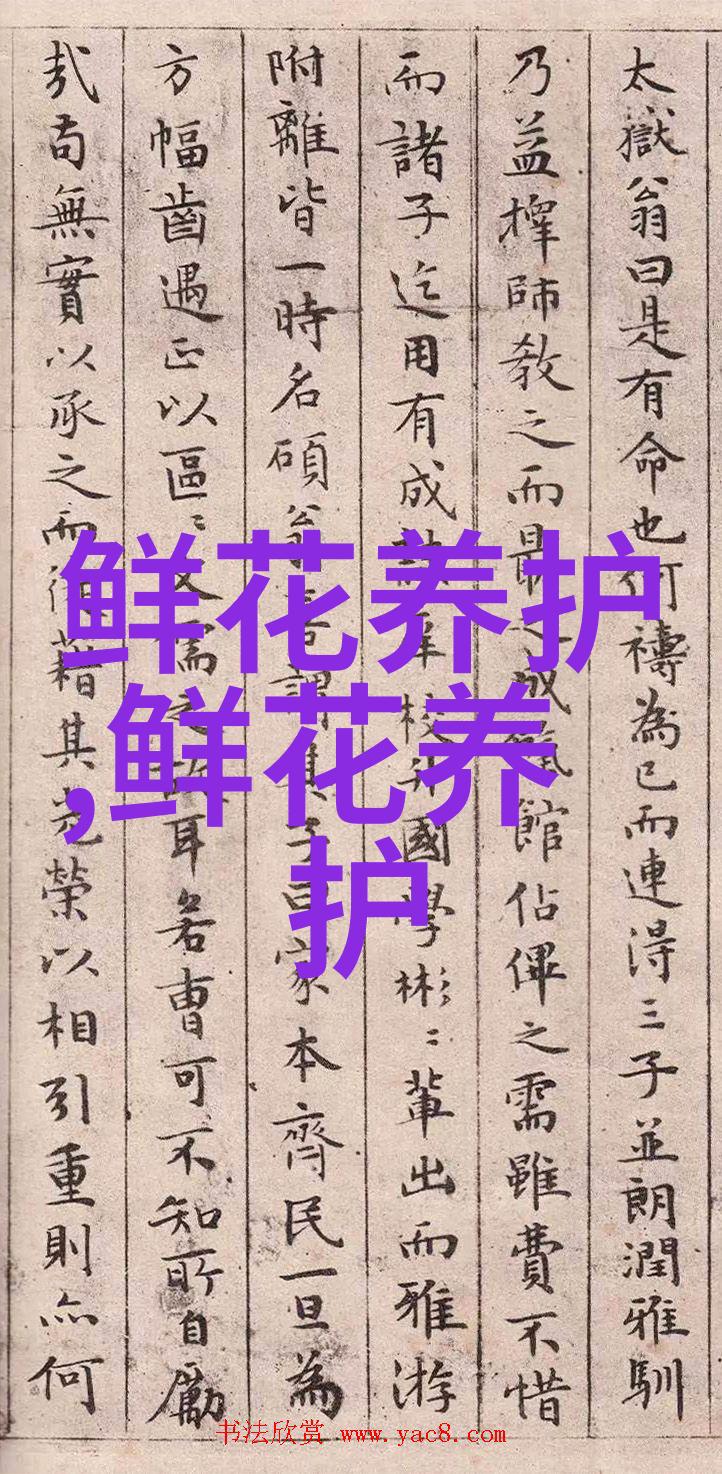 太嶽翁曰是有命也何禱為已而連得三子並朗潤雅馴
乃益擇師教之而最之成館佔俾之需雖費不惜
而諸子迄用有成校弁國學彬〻輩出而雅游
附離皆一時名碩翁謂其子曰家本齊民一旦為
方幅齒遇正以區〻文需之故耳若曹可不知所自勵
哉苟無實以承之而徒藉其光榮以相引重則亦何
鲜花养护
,鲜花养
护
书法欣赏 www.yac8.com